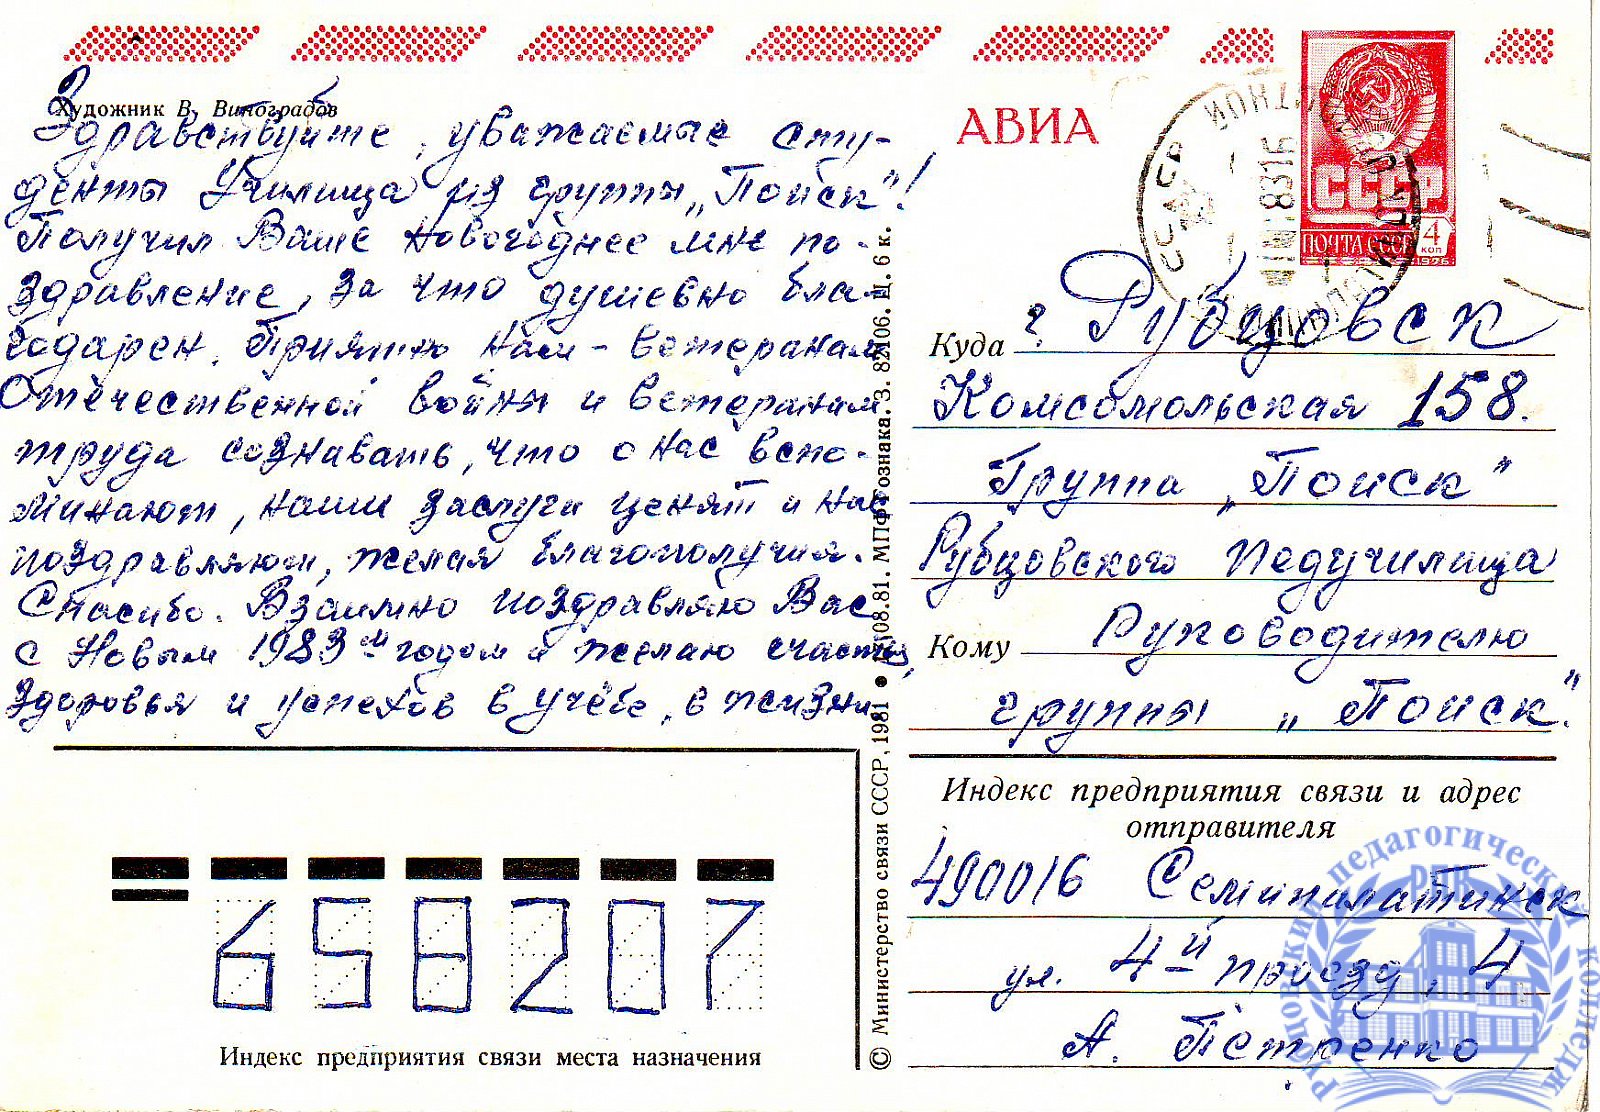 Художник В. Виноградов
Здравствуйте, уважаемые сту-
денты Училища из группы „Поиск"!
Получил Ваше новогоднее мне по-
здравление, за что душевно бла-
годарен. Приятно нам - ветеранам
Отечественной войны и ветеранам
труда сознавать, что о нас вспо-
минают, наши заслуги ценят и нас
поздравляют, желая благополучия.
Спасибо. Взаимно поздравляю Вас
с Новым 1983 м годом и желаю счастья,
здоровья и успехов в учёбе, в жизни
658207
Индекс предприятия связи места назначения
© Министерство связи СССР, 1981 ● 08.81. МПФ Гознака. З. 82106. Ц. 6 к.
АВИА
СССР
ПОЧТА СССР 4 коп
1976
СССР
83 15
Куда г. Рубцовск
Комсомольская 158.
Группа „Поиск"
Рубцовского Педучилища
Кому Руководителю
группы „Поиск".
Индекс предприятия связи и адрес
отправителя
490016 Семипалатинск
ул. 4й проезд, 4
А. Петренко
Рубцовский педагогический колледж
РПК